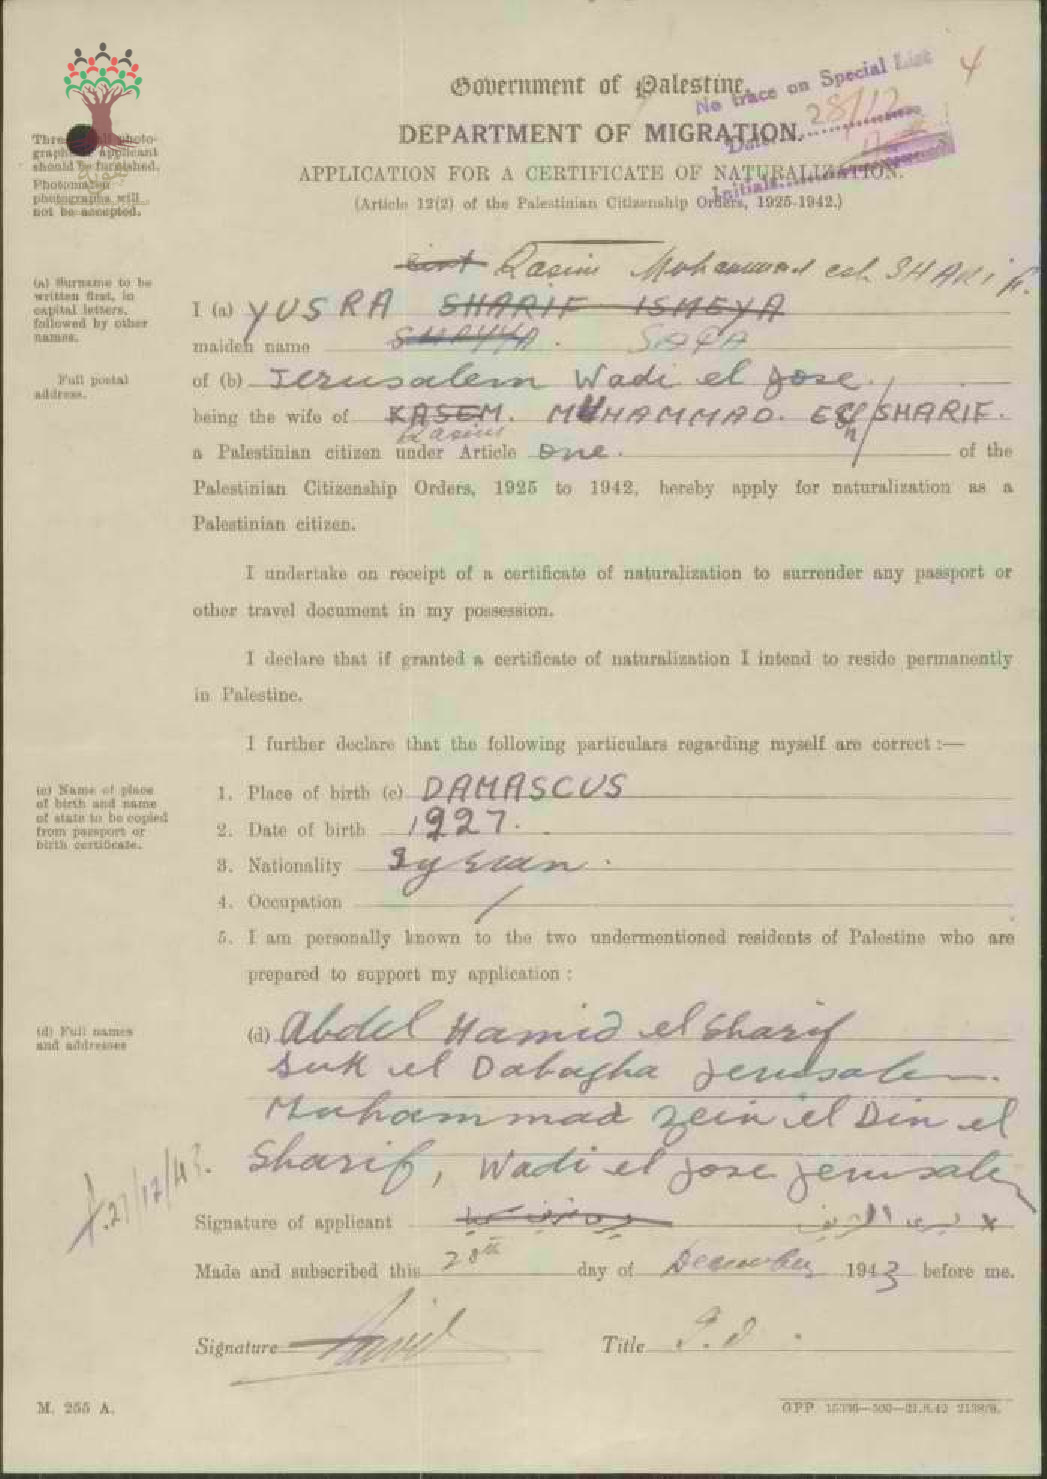 4
Government of Palestine.
No trace on Special List
DEPARTMENT OF MIGRATION.
Date 28/12
APPLICATION FOR A CERTIFICATE OF NATURALIZATION.
Initials
(Article 12(2) of the Palestinian Citizenship Orders, 1925-1942.)
Three small photographs of applicant should be furnished.
Photomaton photographs will not be accepted.
Qasim Mohammad esh SHARIF.
(a) Surname to be written first, in capital letters, followed by other names.
I (a) YUSRA SHARIF ISMEYA
maiden name SHAYYA. SAFA
Full postal address.
of (b) Jerusalem Wadi el Jose.
being the wife of KASEM. MUHAMMAD. ESH SHARIF.
Qasim
a Palestinian citizen under Article one. of the
Palestinian Citizenship Orders, 1925 to 1942, hereby apply for naturalization as a
Palestinian citizen.
I undertake on receipt of a certificate of naturalization to surrender any passport or
other travel document in my possession.
I declare that if granted a certificate of naturalization I intend to reside permanently
in Palestine.
I further declare that the following particulars regarding myself are correct :—
(c) Name of place of birth and name of state to be copied from passport or birth certificate.
1. Place of birth (c) DAMASCUS
2. Date of birth 1927.
3. Nationality Syrian.
4. Occupation /
5. I am personally known to the two undermentioned residents of Palestine who are
prepared to support my application :
(d) Full names and addresses
(d) Abdel Hamid el Sharif
Suk el Dabagha Jerusalem.
Muhammad Zein el Din el
Sharif, Wadi el Jose Jerusalem
27/12/43.
Signature of applicant يسرى الشريف x
Made and subscribed this 28th day of December 1943 before me.
Signature Title
M. 255 A.
GPP 15396—500—21.8.42 2138/8.